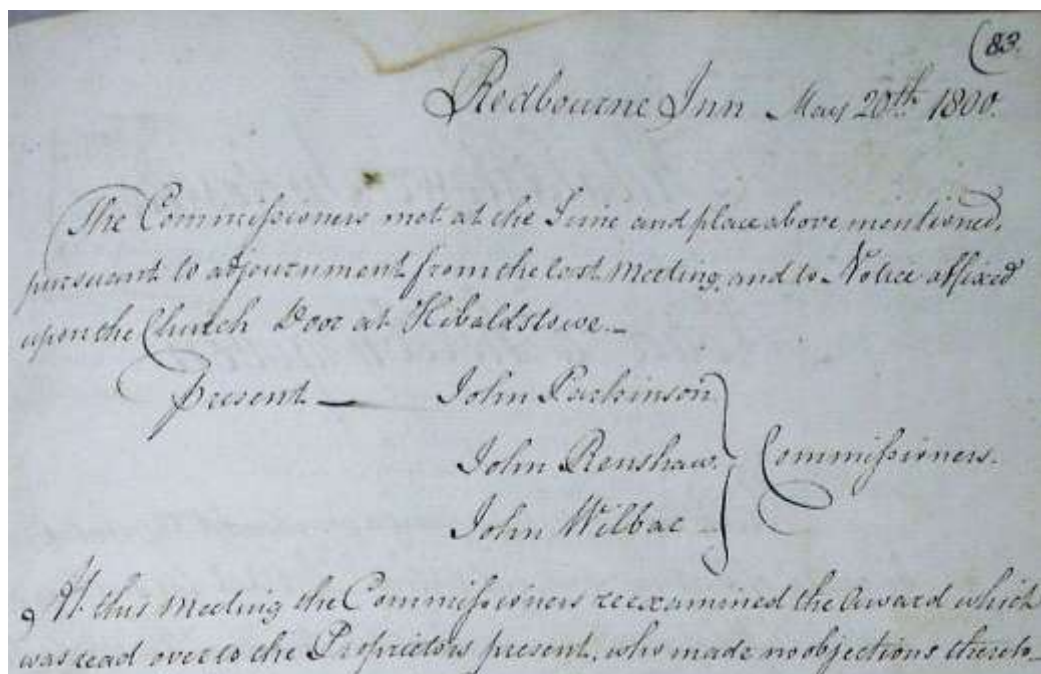 (83.
Redbourne Inn May 20th 1800.
The Commissioners met at the Time and place above mentioned,
pursuant to adjournment from the last Meeting, and to Notice affixed
upon the Church Door at Hibaldstowe.
Present — John Parkinson
John Renshaw Commissioners.
John Wilbar
At this Meeting the Commissioners reexamined the Award which
was read over to the Proprietors present, who made no objections thereto